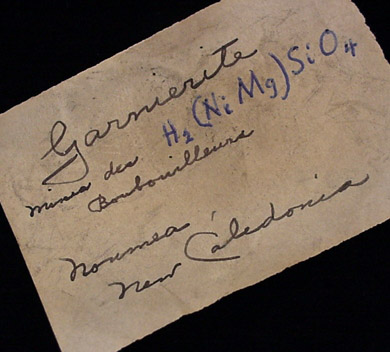 Garnierite
H₂(NiMg)SiO₄
Mines des
Boubouilleurs
Noumea,
New Caledonia